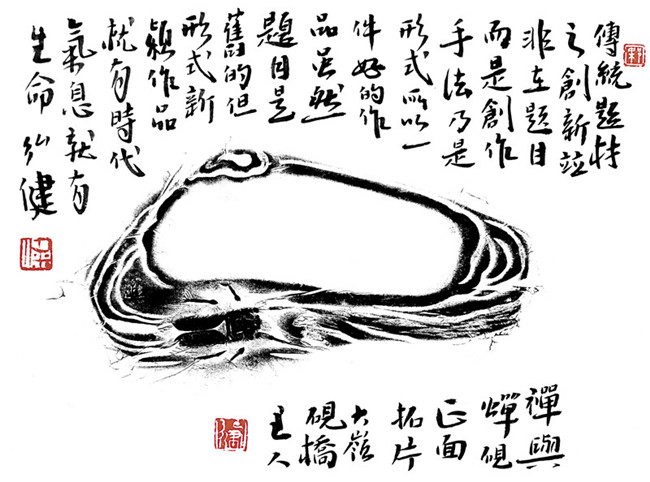 傳統題材
之創新並
非在題目
而是創作
手法乃是
形式所以一
件好的作
品虽然
題目是
舊的但
形式新
穎作品
就有時代
氣息就有
生命 弘健
禪與
蟬硯
正面
拓片
大嶺
硯橋
主人